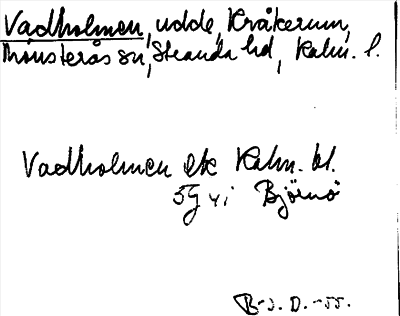 Vadholmen, udde, Kråkerum,
Mönsterås sn, Stranda hd, Kalm. l.
Vadholmen Ek Kalm. bl.
5G vi Björnö
B-s. D. -55.